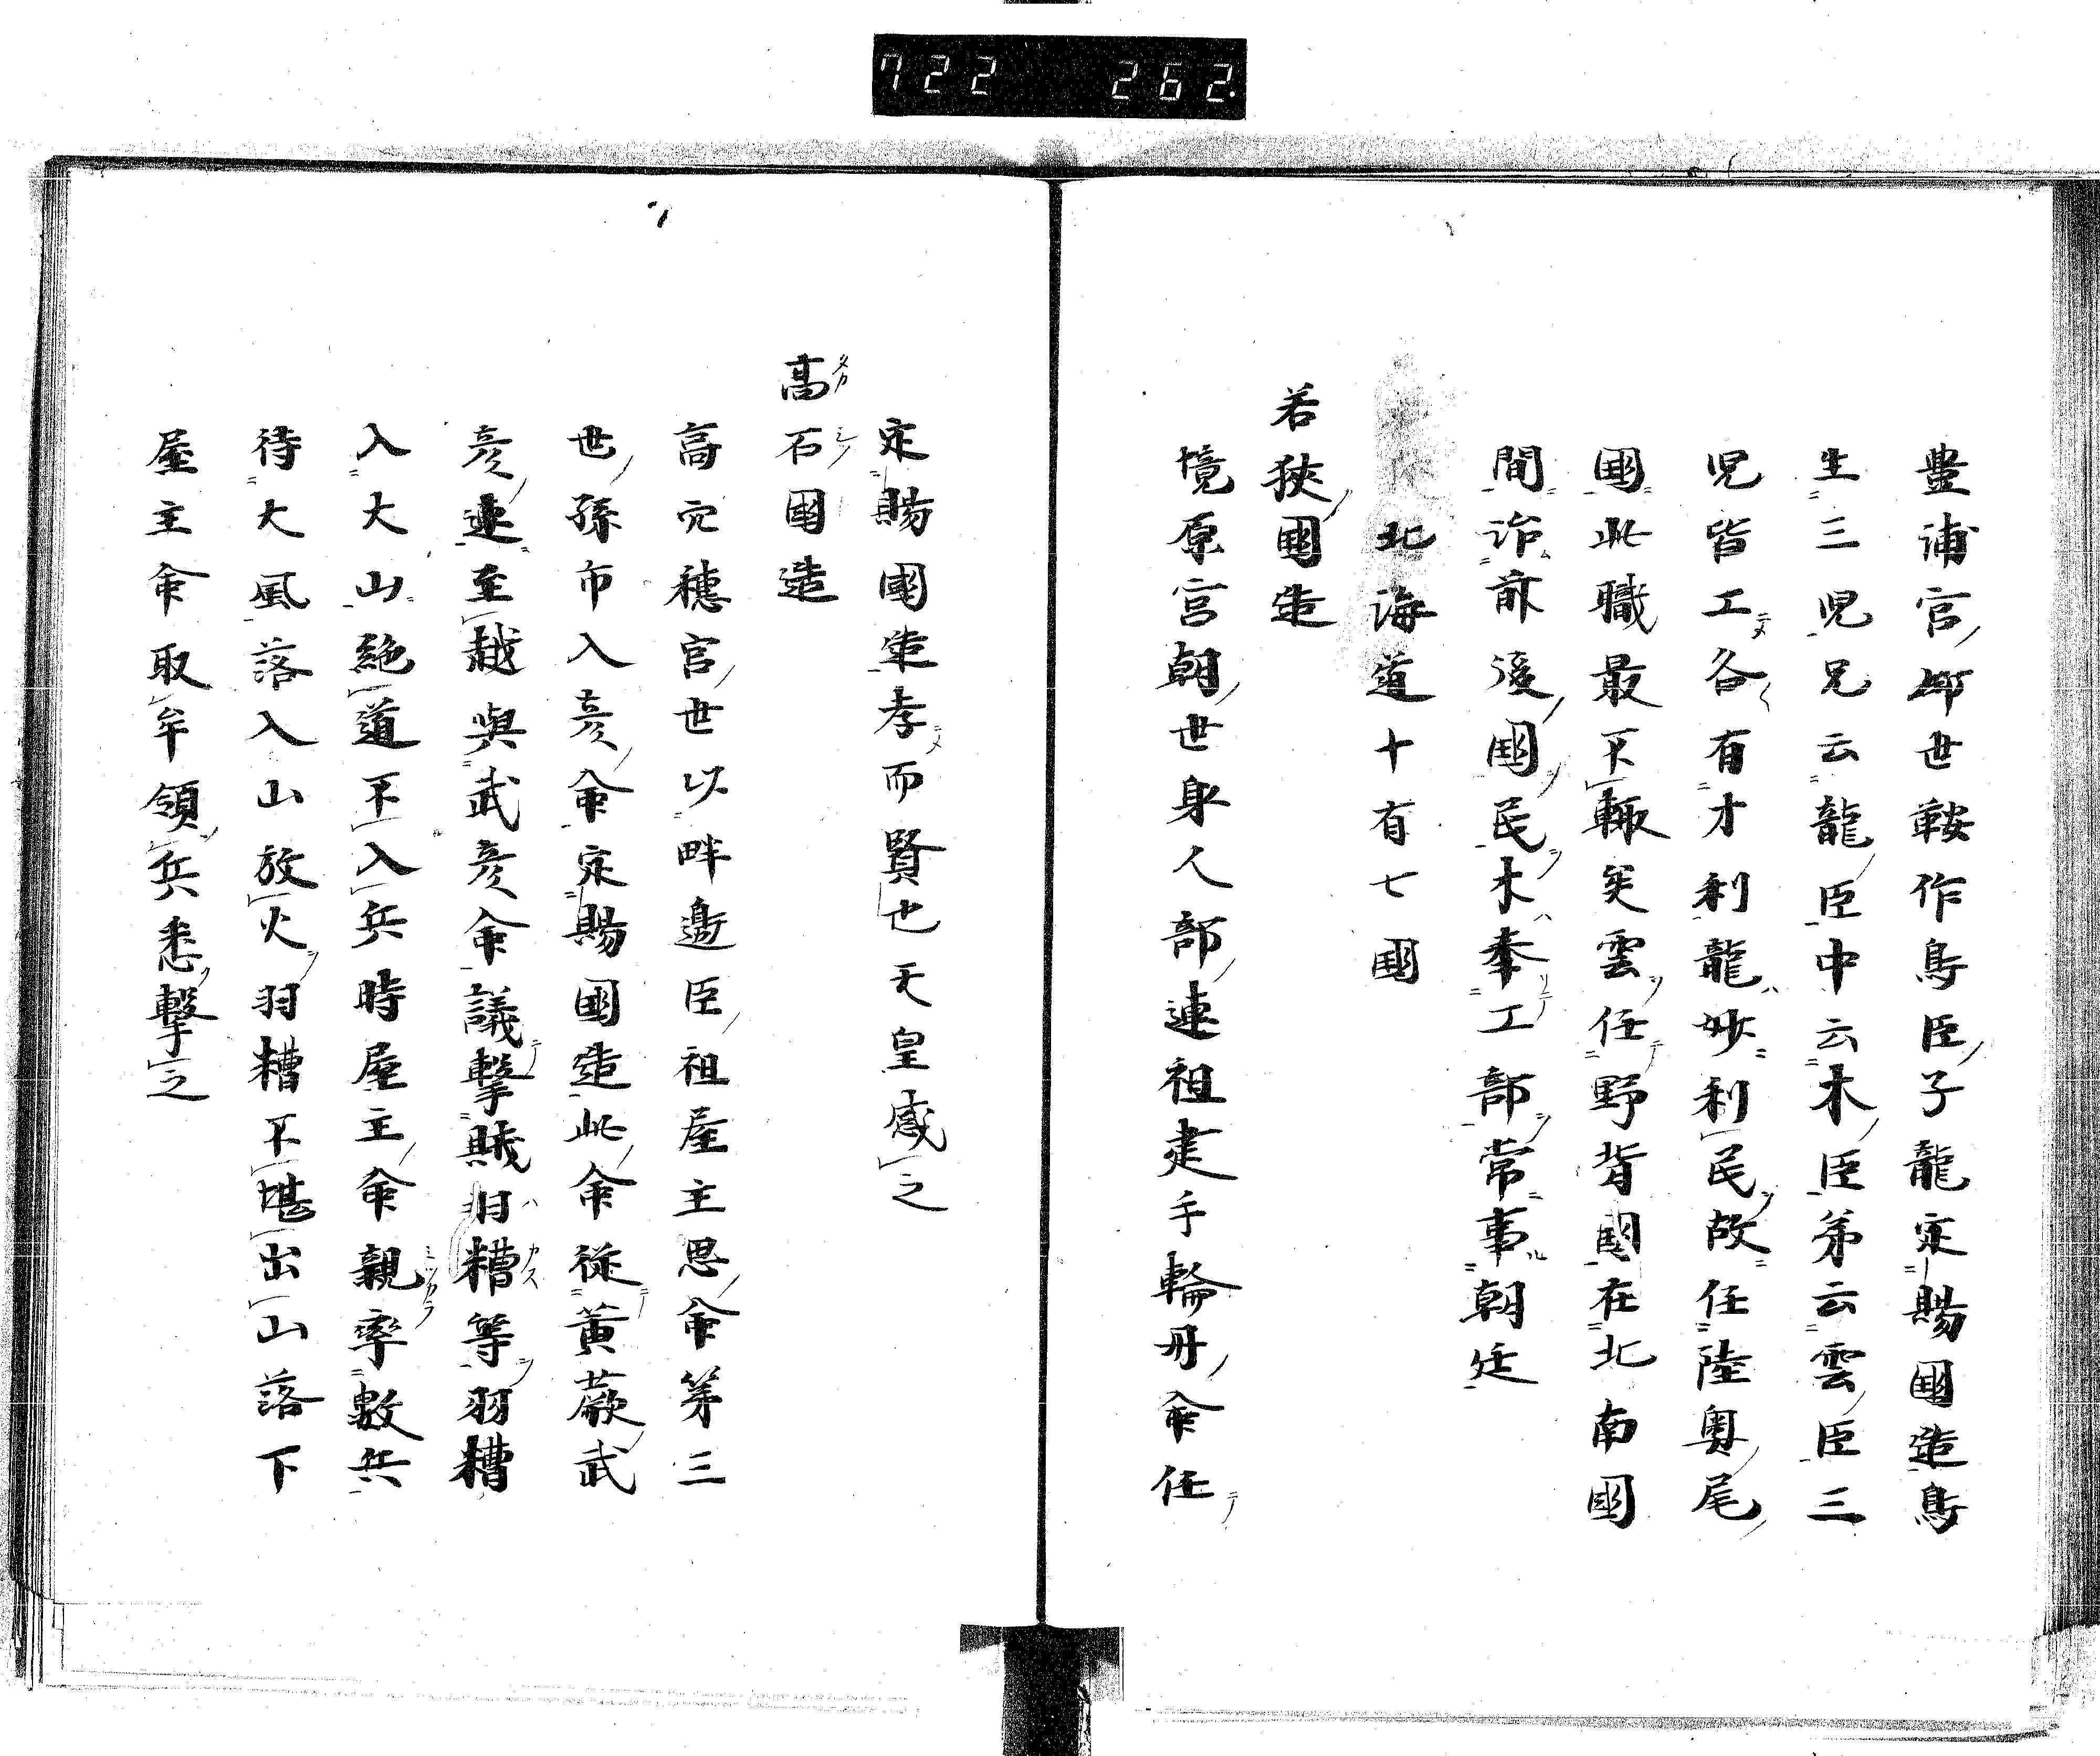 722 262.
豊浦宮御世鞍作鳥臣子龍定賜國造鳥
生三児兄云龍臣中云木臣弟云雲臣三
児皆工各有才利龍妙利民故任陸奥尾
國此職最下輙矣雲任野背國在北南國
間治前後國民木奉工部常事朝廷
北海道十有七國
若狹國造
境原宮朝世身人部連祖建手輪丹命任
定賜國造孝而賢也天皇感之
高石國造
高穴穗宮世以畔邊臣祖屋主思命第三
世孫市入彦命定賜國造此命従黄蕨武
彦連至越與武彦命議撃賊羽糟等羽糟
入大山絶道不入兵時屋主命親率數兵
待大風落入山放火羽糟不堪出山落下
屋主命取牟領兵悉撃之